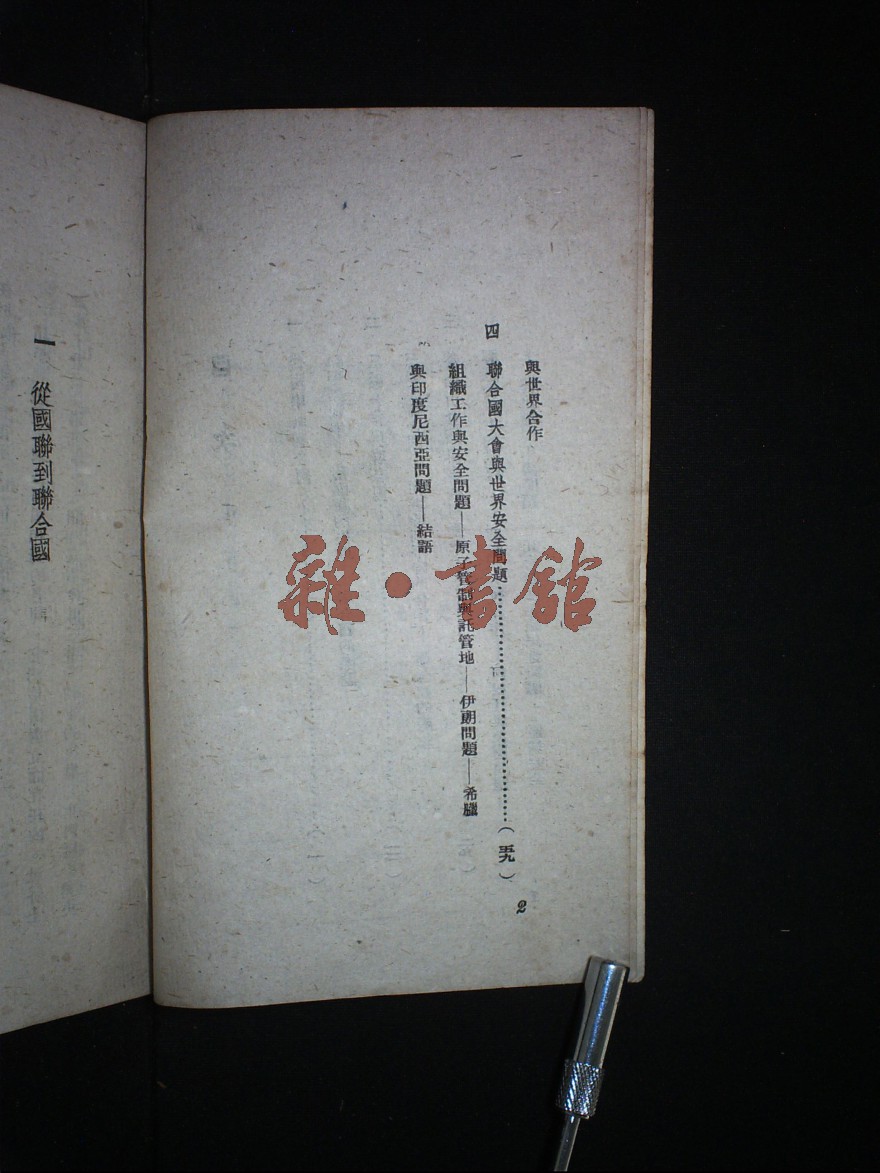 與世界合作
四 聯合國大會與世界安全問題……………………（五九）
組織工作與安全問題——原子管制與託管地——伊朗問題——希臘
與印度尼西亞問題——結語
2
一 從國聯到聯合國
雜·書館